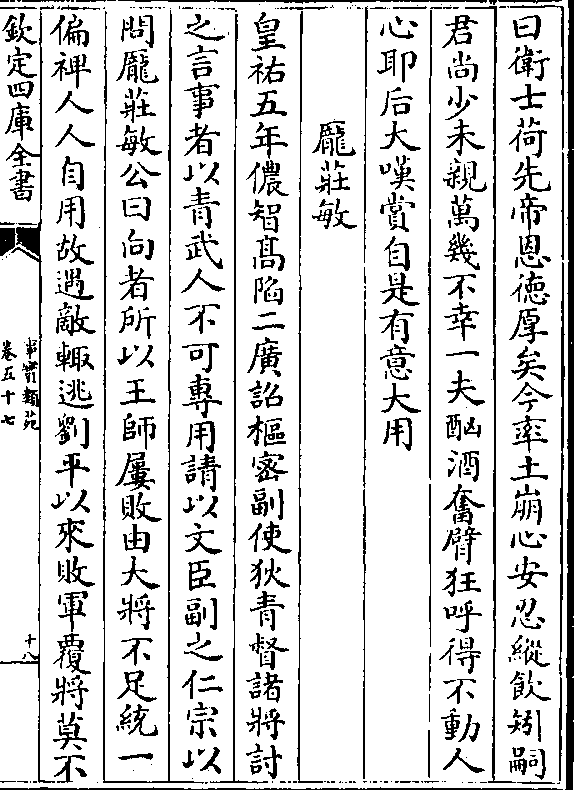 曰衛士荷先帝恩徳厚矣今率土崩心安忍縱飲矧嗣
君尚少未親萬幾不幸一夫酗酒奮臂狂呼得不動人
心耶后大嘆賞自是有意大用
龎莊敏
皇祐五年儂智髙陷二廣詔樞宻副使狄青督諸將討
之言事者以青武人不可専用請以文臣副之仁宗以
問龎莊敏公曰向者所以王師屢敗由大將不足統一
偏禆人人自用故遇敵輙逃劉平以來敗軍覆將莫不
欽定四庫全書
事實類苑
卷五十七
十八